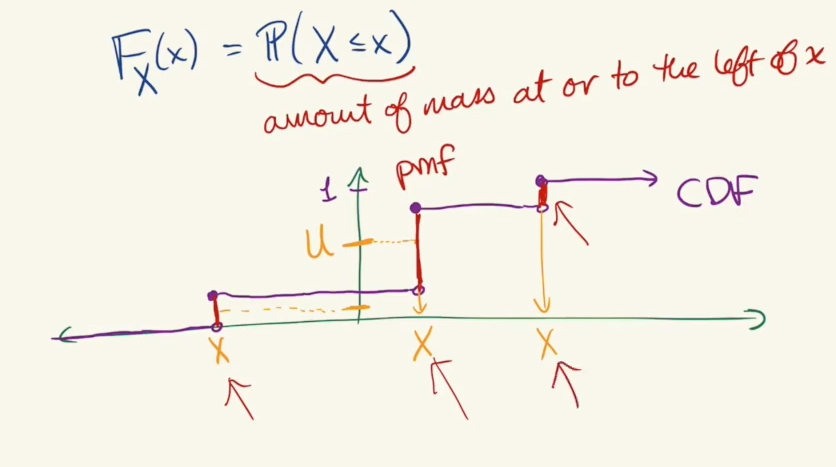 F_X(x) = ℙ(X ≤ x)
amount of mass at or to the left of x
pmf
1
CDF
U
X X X